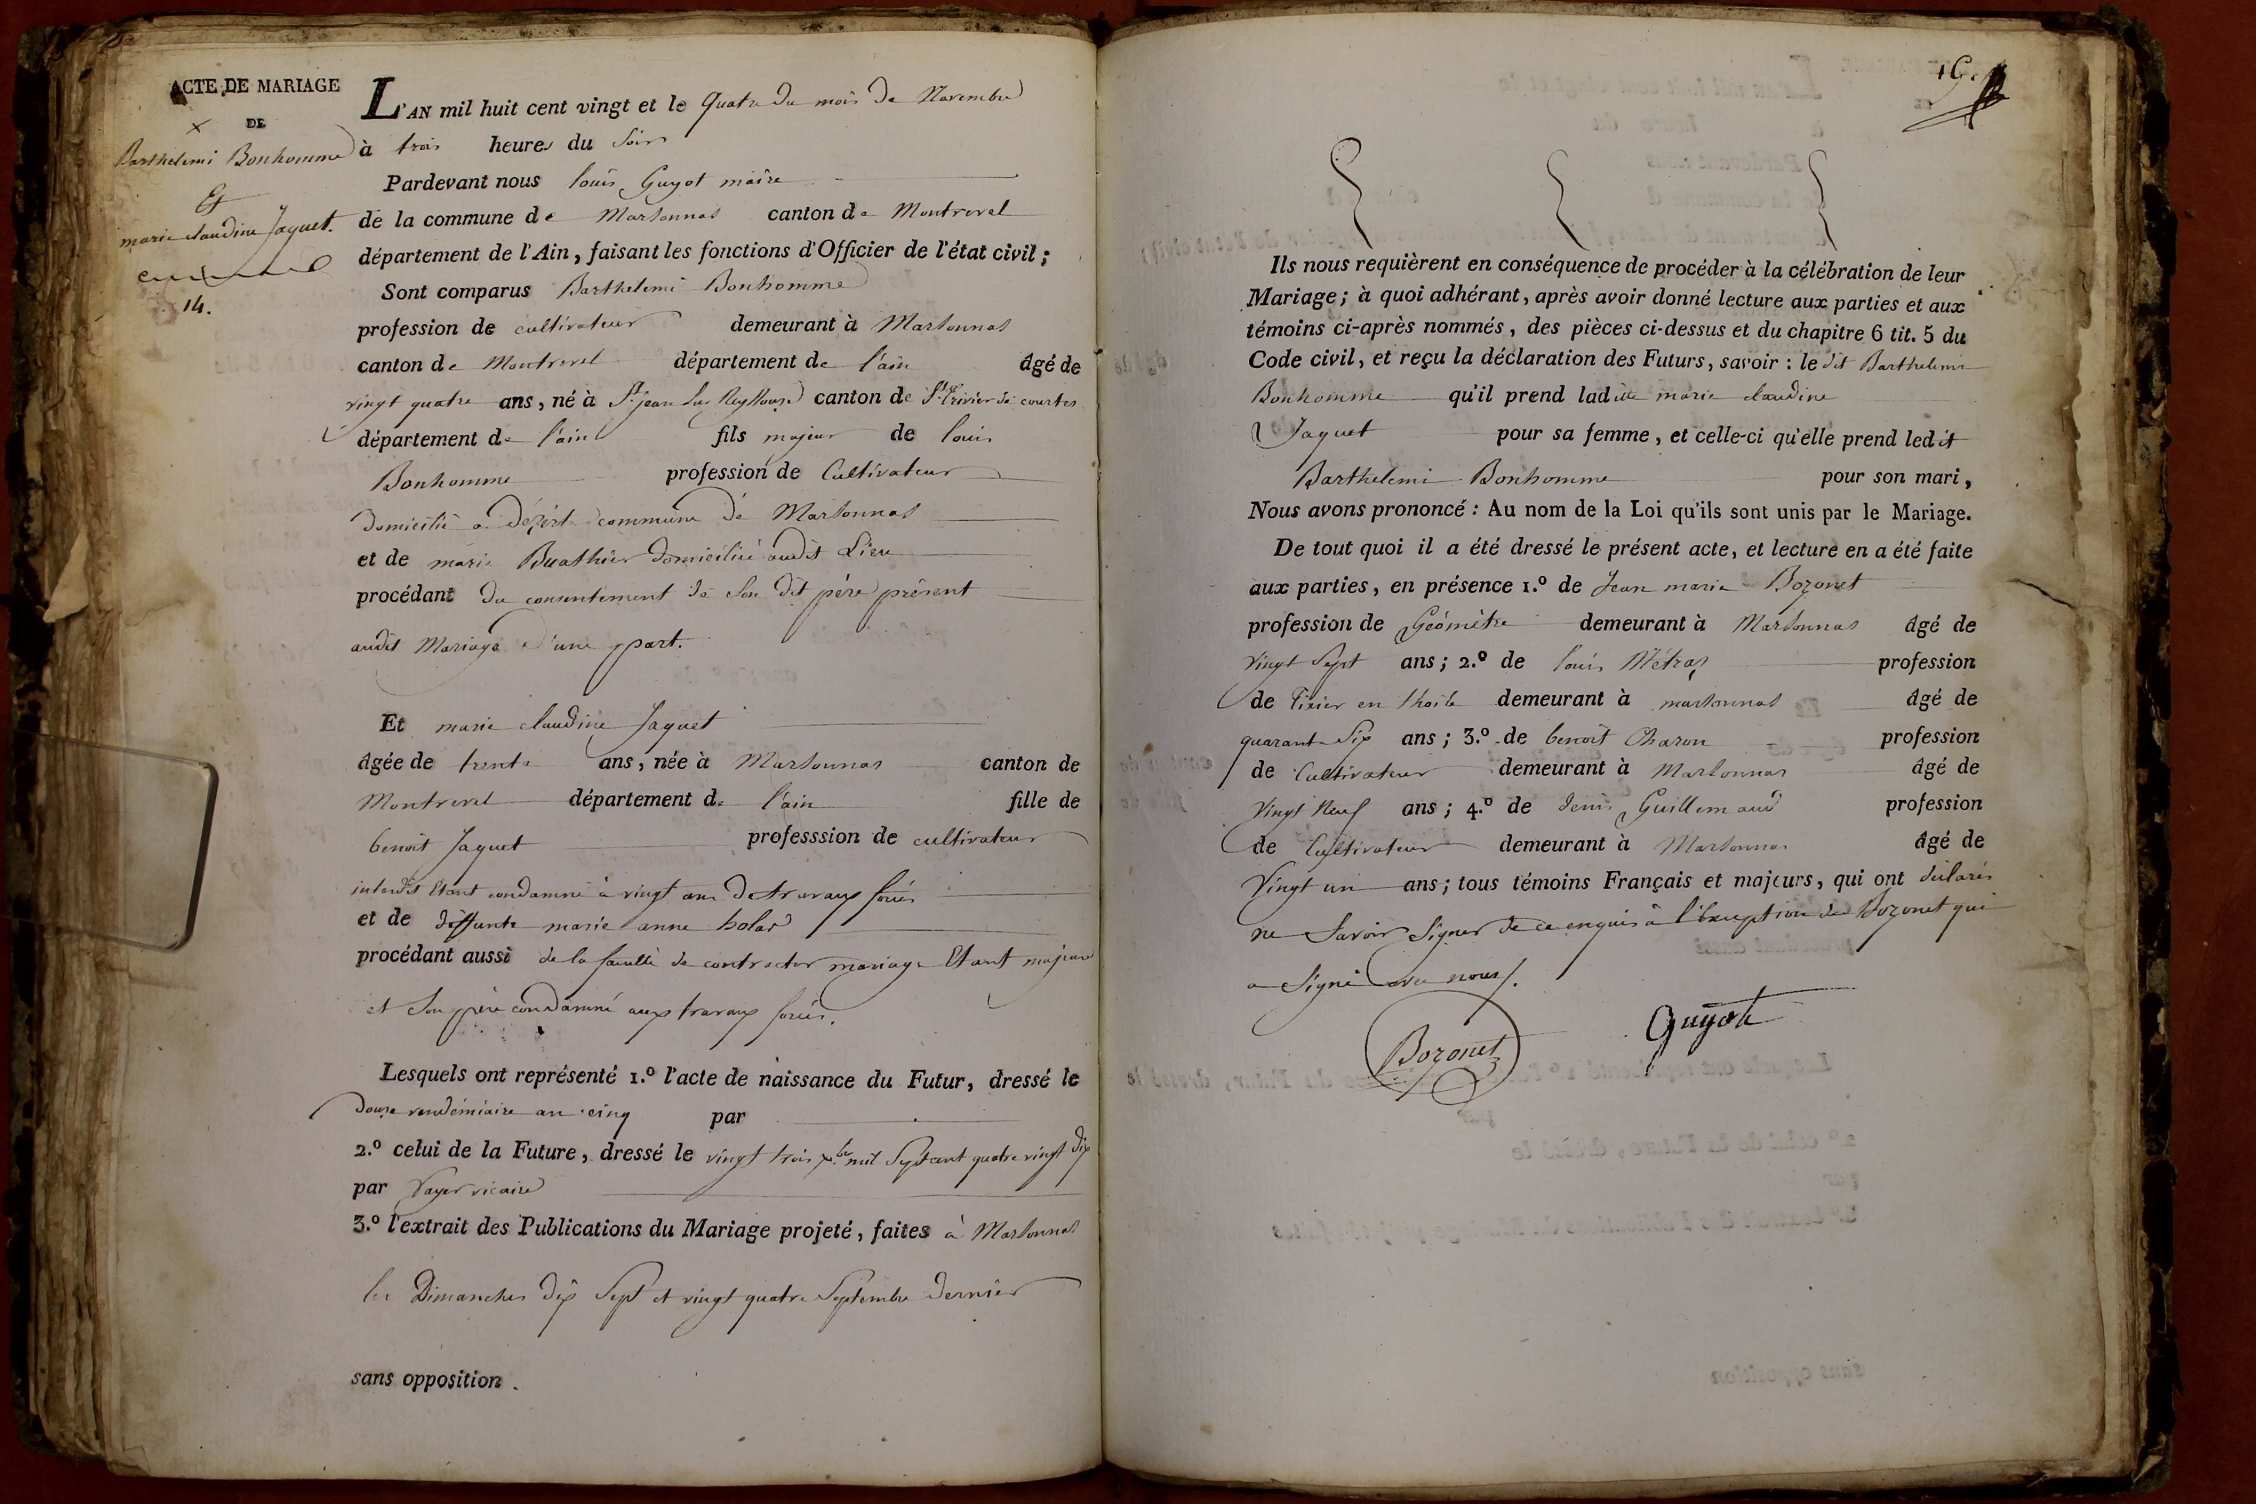 ACTE DE MARIAGE
DE
Barthelemi Bonhomme
Et
marie claudine Jaquet.
14.
L'AN mil huit cent vingt et le quatre du mois de Novembre
à trois heures du soir
Pardevant nous louis Guyot maire
de la commune de Marsonnas canton de Montrevel
département de l'Ain, faisant les fonctions d'Officier de l'état civil;
Sont comparus Barthelemi Bonhomme
profession de cultivateur demeurant à Marsonnas
canton de Montrevel département de l'ain âgé de
vingt quatre ans, né à St. jean sur Reyssouze canton de St. trivier de courtes
département de l'ain fils majeur de louis
Bonhomme profession de Cultivateur
domicilié à commune de Marsonnas
et de marie Buathier domiciliée audit Lieu
procédant du consentement de son dit père présent
audit Mariage d'une part.
Et marie claudine Jaquet
âgée de trente ans, née à Marsonnas canton de
Montrevel département de l'ain fille de
benoit Jaquet professsion de cultivateur
interdit Etant condamné à vingt ans de travaux forcés
et de deffunte marie anne
procédant aussi de la faculté de contracter mariage Etant majeure
et son père condamné aux travaux forcés.
Lesquels ont représenté 1.º l'acte de naissance du Futur, dressé le
douze vendémiaire an cinq par
2.º celui de la Future, dressé le vingt trois xbre mil Sept cent quatre vingt dix
par vicaire
3.º l'extrait des Publications du Mariage projeté, faites à Marsonnas
les Dimanches dix Sept et vingt quatre Septembre dernier
sans opposition.
16.
Ils nous requièrent en conséquence de procéder à la célébration de leur
Mariage; à quoi adhérant, après avoir donné lecture aux parties et aux
témoins ci-après nommés, des pièces ci-dessus et du chapitre 6 tit. 5 du
Code civil, et reçu la déclaration des Futurs, savoir: le dit Barthelemi
Bonhomme qu'il prend ladite marie claudine
Jaquet pour sa femme, et celle-ci qu'elle prend ledit
Barthelemi Bonhomme pour son mari,
Nous avons prononcé: Au nom de la Loi qu'ils sont unis par le Mariage.
De tout quoi il a été dressé le présent acte, et lecture en a été faite
aux parties, en présence 1.º de Jean marie Bozonet
profession de Géomètre demeurant à Marsonnas âgé de
vingt Sept ans; 2.º de louis Métraz profession
de Tixier en thoile demeurant à marsonnas âgé de
quarante Six ans; 3.º de benoit Charon profession
de Cultivateur demeurant à Marsonnas âgé de
vingt Neuf ans; 4.º de denis Guillemaud profession
de Cultivateur demeurant à Marsonnas âgé de
Vingt un ans; tous témoins Français et majeurs, qui ont déclarés
ne Savoir Signer de ce enquis à l'Exception de Bozonet qui
a Signé avec nous.
Bozonet
Guyot